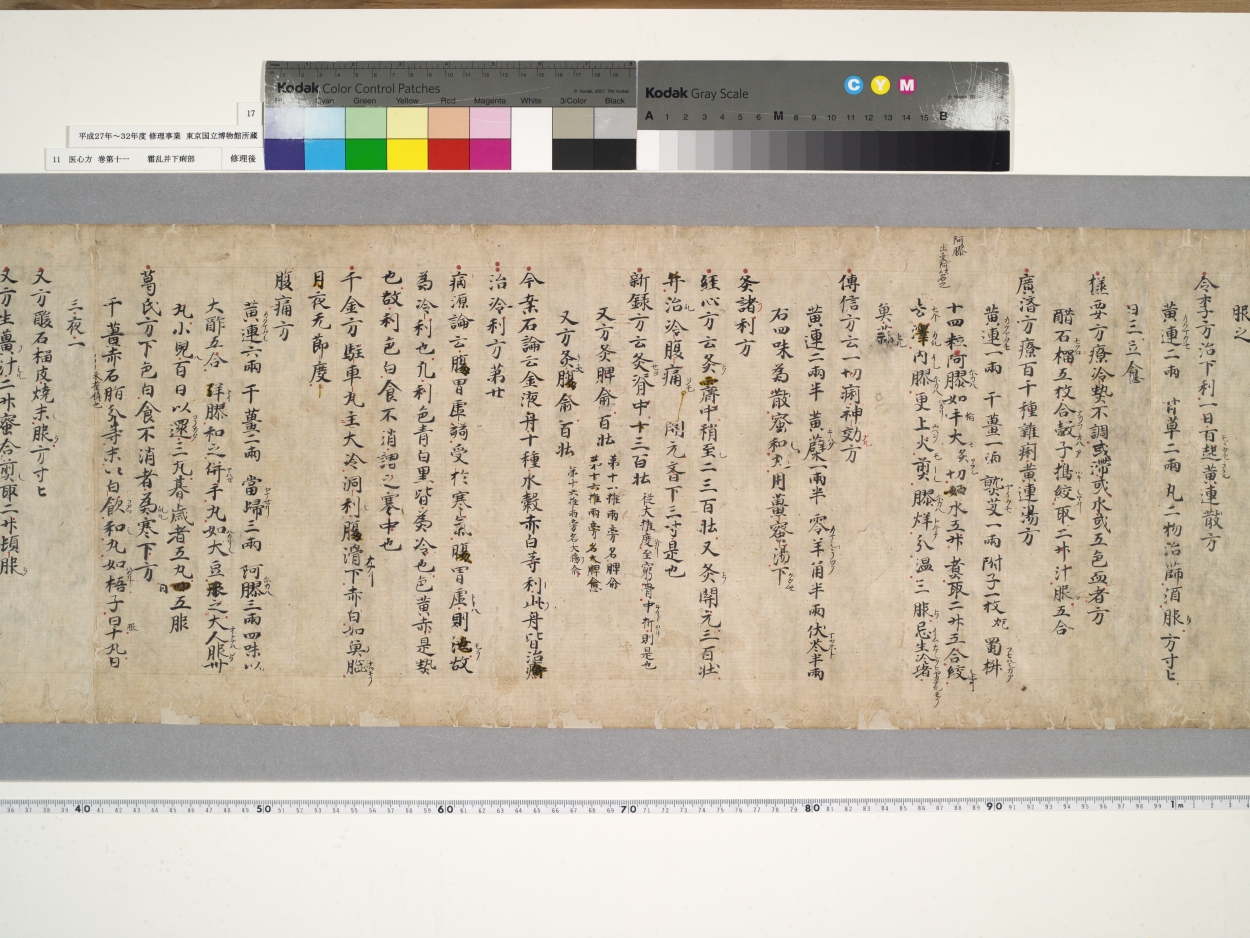 Kodak Color Control Patches
Cyan Green Yellow Red Magenta White 3/Color Black
Kodak Gray Scale
C Y M
A 1 2 3 4 5 6 M 8 9 10 11 12 13 14 15 B
17
平成27年〜32年度 修理事業 東京国立博物館所蔵
11 医心方 巻第十一 霍乱并下痢部 修理後
服之
令李方治下利一日百起黄連散方
黄連二兩 甘草二兩 凡二物治篩酒服方寸匕
日三三愈
極要方療冷熱不調或滞或水或五色血者方
醋石榴五枚合㲉子搗絞取二升汁服五合
廣済方療百千種雜痢黄連湯方
黄連一兩 干薑一兩 熟艾一兩 附子一枚炮 蜀椒
十四粒 阿膠如手大炙 切 水五升煮取二升五合絞
去滓内膠更上火煎膠烊分温三服忌生冷猪
阿膠
傳信方云一切痢神効方
黄連二兩半 黄蘗一兩半 零羊角半兩 伏苓半兩
右四味為散蜜和丸用薑蜜湯下
灸諸利方
経心方云灸齊中稍至二三百壮又灸開元三百壮
并治冷腹痛 開元斉下三寸是也
新録方云灸脊中三百壮 従大椎度至窮脊中折則是也
又方灸脾兪百壮 第十一推兩旁名脾兪
又方灸大腸兪百壮 第十六推兩旁名大腸兪
今案石論云金液丹十種水穀赤白等利此丹皆治
治冷利方第廿
病源論云腹胃虚弱受於寒氣腸胃虚則泄故
為冷利也凡利色青白黒皆為冷也色黄赤是熱
也故利色白食不消謂之寒中也
千金方駐車丸主大冷洞利腸滑下赤白如魚脳
日夜无節度
腹痛方
黄連六兩 干薑二兩 當歸三兩 阿膠三兩 四味
大酢五合烊膠和之併手丸如大豆服之大人服卅
丸小兒百日以還三丸朞歳者五丸 五服
葛氏方下色白食不消者為寒下方
干薑赤石脂分等末以白飲和丸如梧子服十丸日
三夜一
又方酸石榴皮燒末服方寸匕
又方生薑汁二升蜜合煎取二升頓服
40 50 60 70 80 90 1m